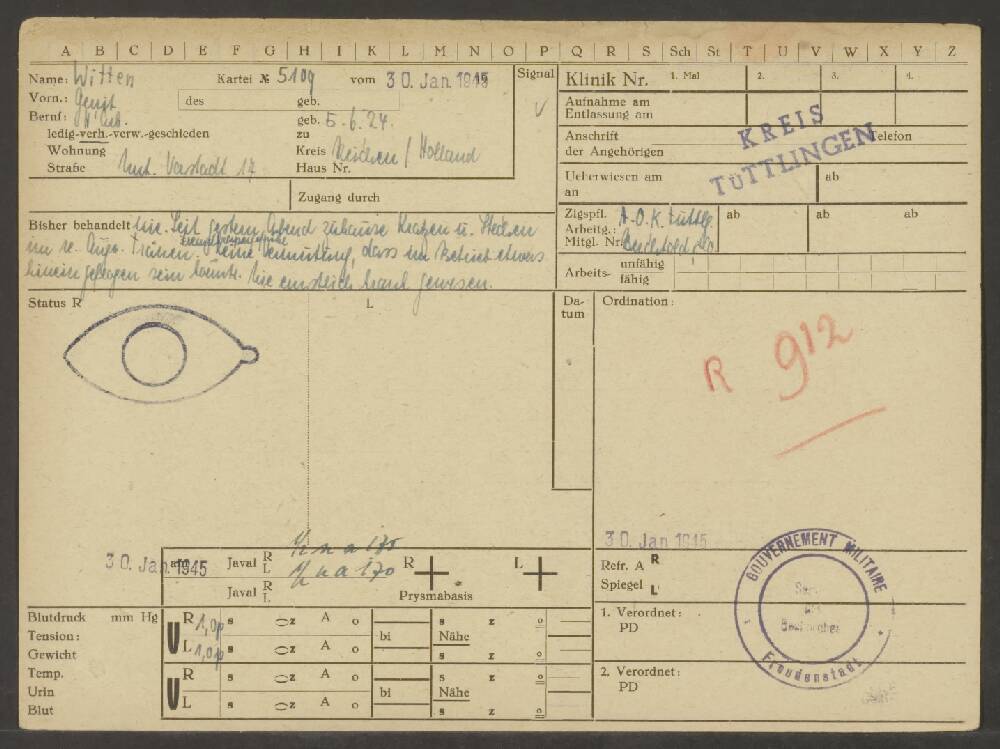 A B C D E F G H I K L M N O P Q R S Sch St T U V W X Y Z
Name: Witten Kartei № 5109 vom 30. Jan. 1945 Signal
Vorn.: Gerrit des geb.
Beruf: geb. 5.6.24.
ledig-verh.-verw.-geschieden zu
Wohnung Kreis / Holland
Straße Unt. Vorstadt 17 Haus Nr.
Zugang durch
Klinik Nr. 1. Mal 2. 3. 4.
Aufnahme am
Entlassung am
Anschrift Telefon
der Angehörigen
KREIS
TUTTLINGEN
Ueberwiesen am ab
an
Zigspfl. A.O.K. Tuttlg. ab ab ab
Arbeitg.:
Mitgl. Nr.
Arbeits- unfähig
fähig
Bisher behandelt nie. Seit gestern Abend zuhause Kratzen u. Stechen
im re. Auge. Tränen. Keine Vermutung, dass im Betrieb etwas
hinein geflogen sein könnte. Nie ernstlich krank gewesen.
Status R L
Da-
tum
Ordination:
R 912
30. Jan 1945
30. Jan. 1945
am
Javal R ½ n a 175
L ½ n a 170
Javal R
L
R L
Prysmabasis
Refr. A R
Spiegel L
GOUVERNEMENT MILITAIRE
Freudenstadt
Blutdruck mm Hg
Tension:
Gewicht
Temp.
Urin
Blut
U R 1,0p s z A o s z o
L 1,0p s z A o bi Nähe s z o
U R s z A o s z o
L s z A o bi Nähe s z o
1. Verordnet:
PD
2. Verordnet:
PD